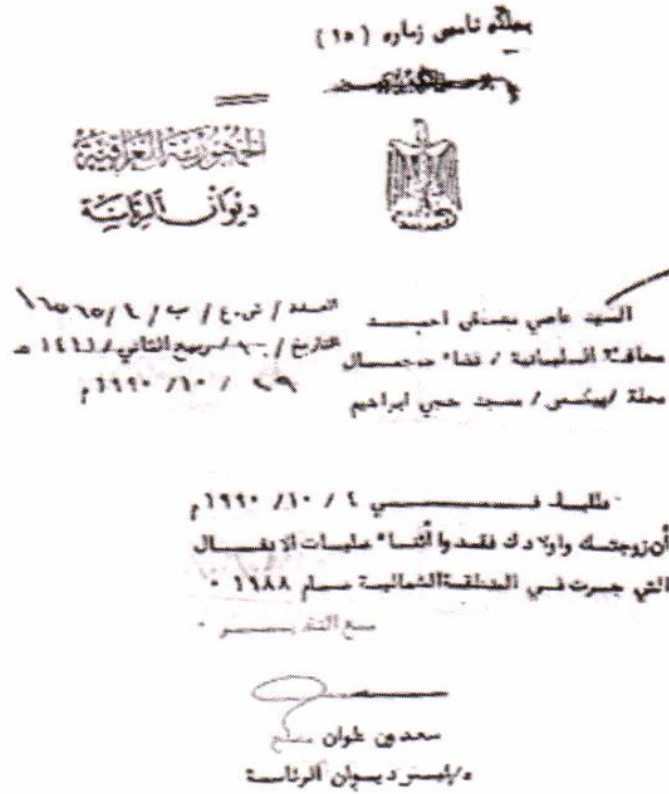 بەڵگە نامەی ژمارە (١٥)
الجمهورية العراقية
ديوان الرئاسة
العدد / ش.ع / ب / ٤ / ١٦٥٦٥
التاريخ / ربيع الثاني / ١٤١١ هـ
٢٩ / ١٠ / ١٩٩٠م
السيد عاصي مصطفى احمد
محافظة السليمانية / قضاء جمجمال
محلة / مسجد حجي ابراهيم
طلبك فــي ٤ / ١٠ / ١٩٩٠م
أن زوجتك واولادك فقدوا أثناء عمليات الانفال
التي جرت في المنطقة الشمالية عــام ١٩٨٨ ٠
مع التقديــر ٠
سعدون علوان
ع/رئيس ديوان الرئاسة